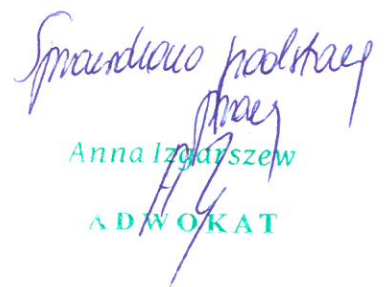 Sprawdzono podstawę
pracy
Anna Izgarszew
ADWOKAT